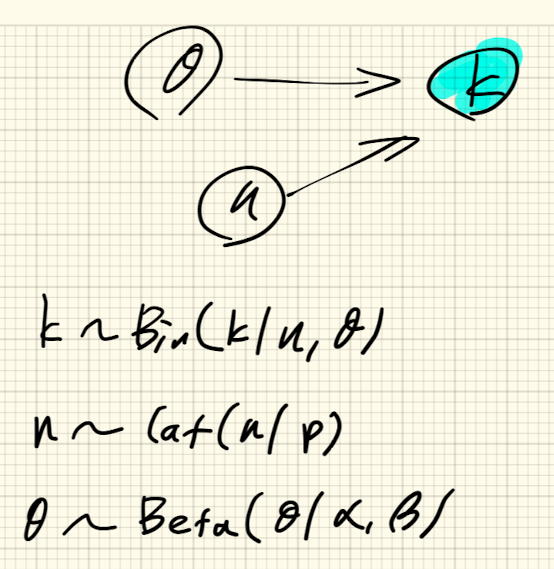 θ k
n
k ~ Bin(k|n, θ)
n ~ Cat(n|p)
θ ~ Beta(θ|α, β)